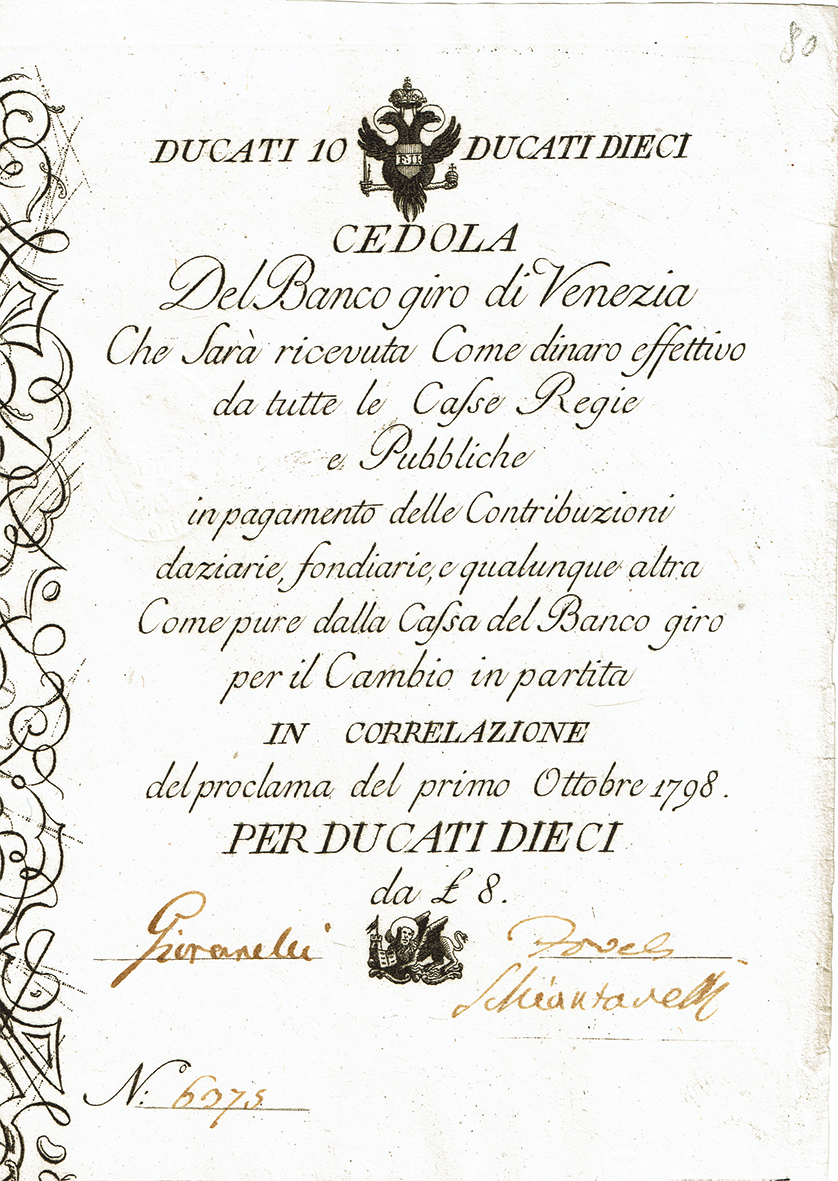 80
DUCATI 10 DUCATI DIECI
F·II
CEDOLA
Del Banco giro di Venezia
Che Sarà ricevuta Come dinaro effettivo
da tutte le Caſse Regie
e Pubbliche
in pagamento delle Contribuzioni
daziarie, fondiarie, e qualunque altra
Come pure dalla Caſsa del Banco giro
per il Cambio in partita
IN CORRELAZIONE
del proclama del primo Ottobre 1798.
PER DUCATI DIECI
da £ 8.
Giovanelli
Schiantarelli
N: 6375